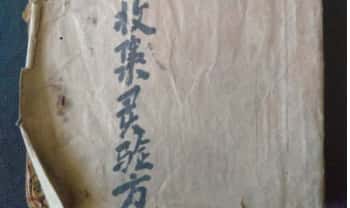 收集灵验方